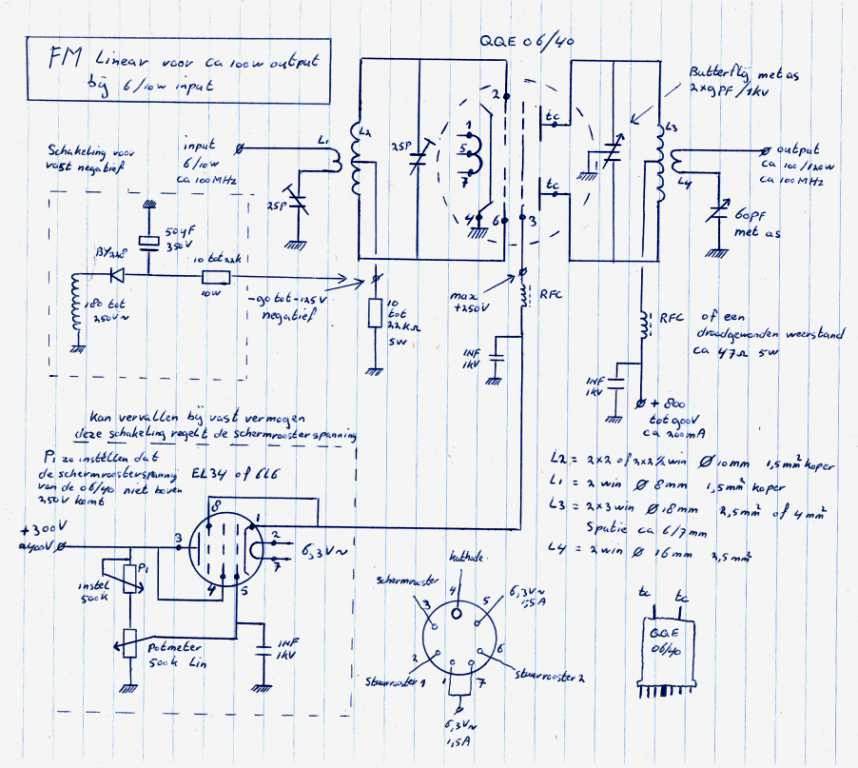 QQE 06/40
FM Linear voor ca 100W output
bij 6/10W input
Schakeling voor
vast negatief
input
6/10W
ca 100MHz
L1
L2
25P
25P
2
1
5
7
4
6
3
tc
tc
Butterfly met as
2x9PF/1kV
L3
L4
output
ca 100/120W
ca 100MHz
60PF
met as
50µF
350V
BY228
10 tot 22k
10W
180 tot
250V~
-90 tot -125V
negatief
10
tot
22KΩ
5W
max
+250V
RFC
1NF
1kV
RFC of een
draadgewonden weerstand
ca 47Ω 5W
1NF
1kV
+ 800
tot 900V
ca 200mA
Kan vervallen bij vast vermogen
deze schakeling regelt de schermroosterspanning
P1 zo instellen dat
de schermroosterspanng
van de 06/40 niet boven
250V komt
EL34 of 6L6
+300V
a400V
8
1
3
2
7
4
5
6,3V~
P1
instel
500k
Potmeter
500k Lin
1NF
1kV
L2 = 2x2 of 2x2½ win Ø 10mm 1,5mm² koper
L1 = 2 win Ø 8mm 1,5mm² koper
L3 = 2x3 win Ø 18mm 2,5mm² of 4mm²
Spatie ca 6/7mm
L4 = 2 win Ø 16mm 2,5mm²
Kathode
schermrooster
4
3
5
6,3V~
1,5A
2
6
Stuurrooster 1
1
7
Stuurrooster 2
6,3V~
1,5A
tc
tc
QQE
06/40